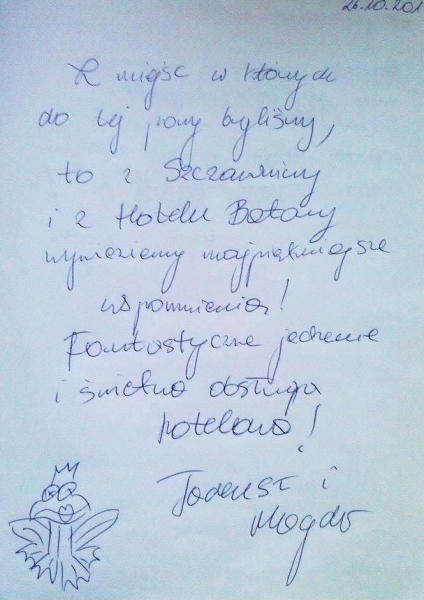 26.10.201
Z miejsc w których
do tej pory byliśmy,
to z Szczawnicy
i z Hotelu Batory
wywieziemy najpiękniejsze
wspomnienia!
Fantastyczne jedzenie
i świetna obsługa
hotelowa!
Tadeusz i
Magda